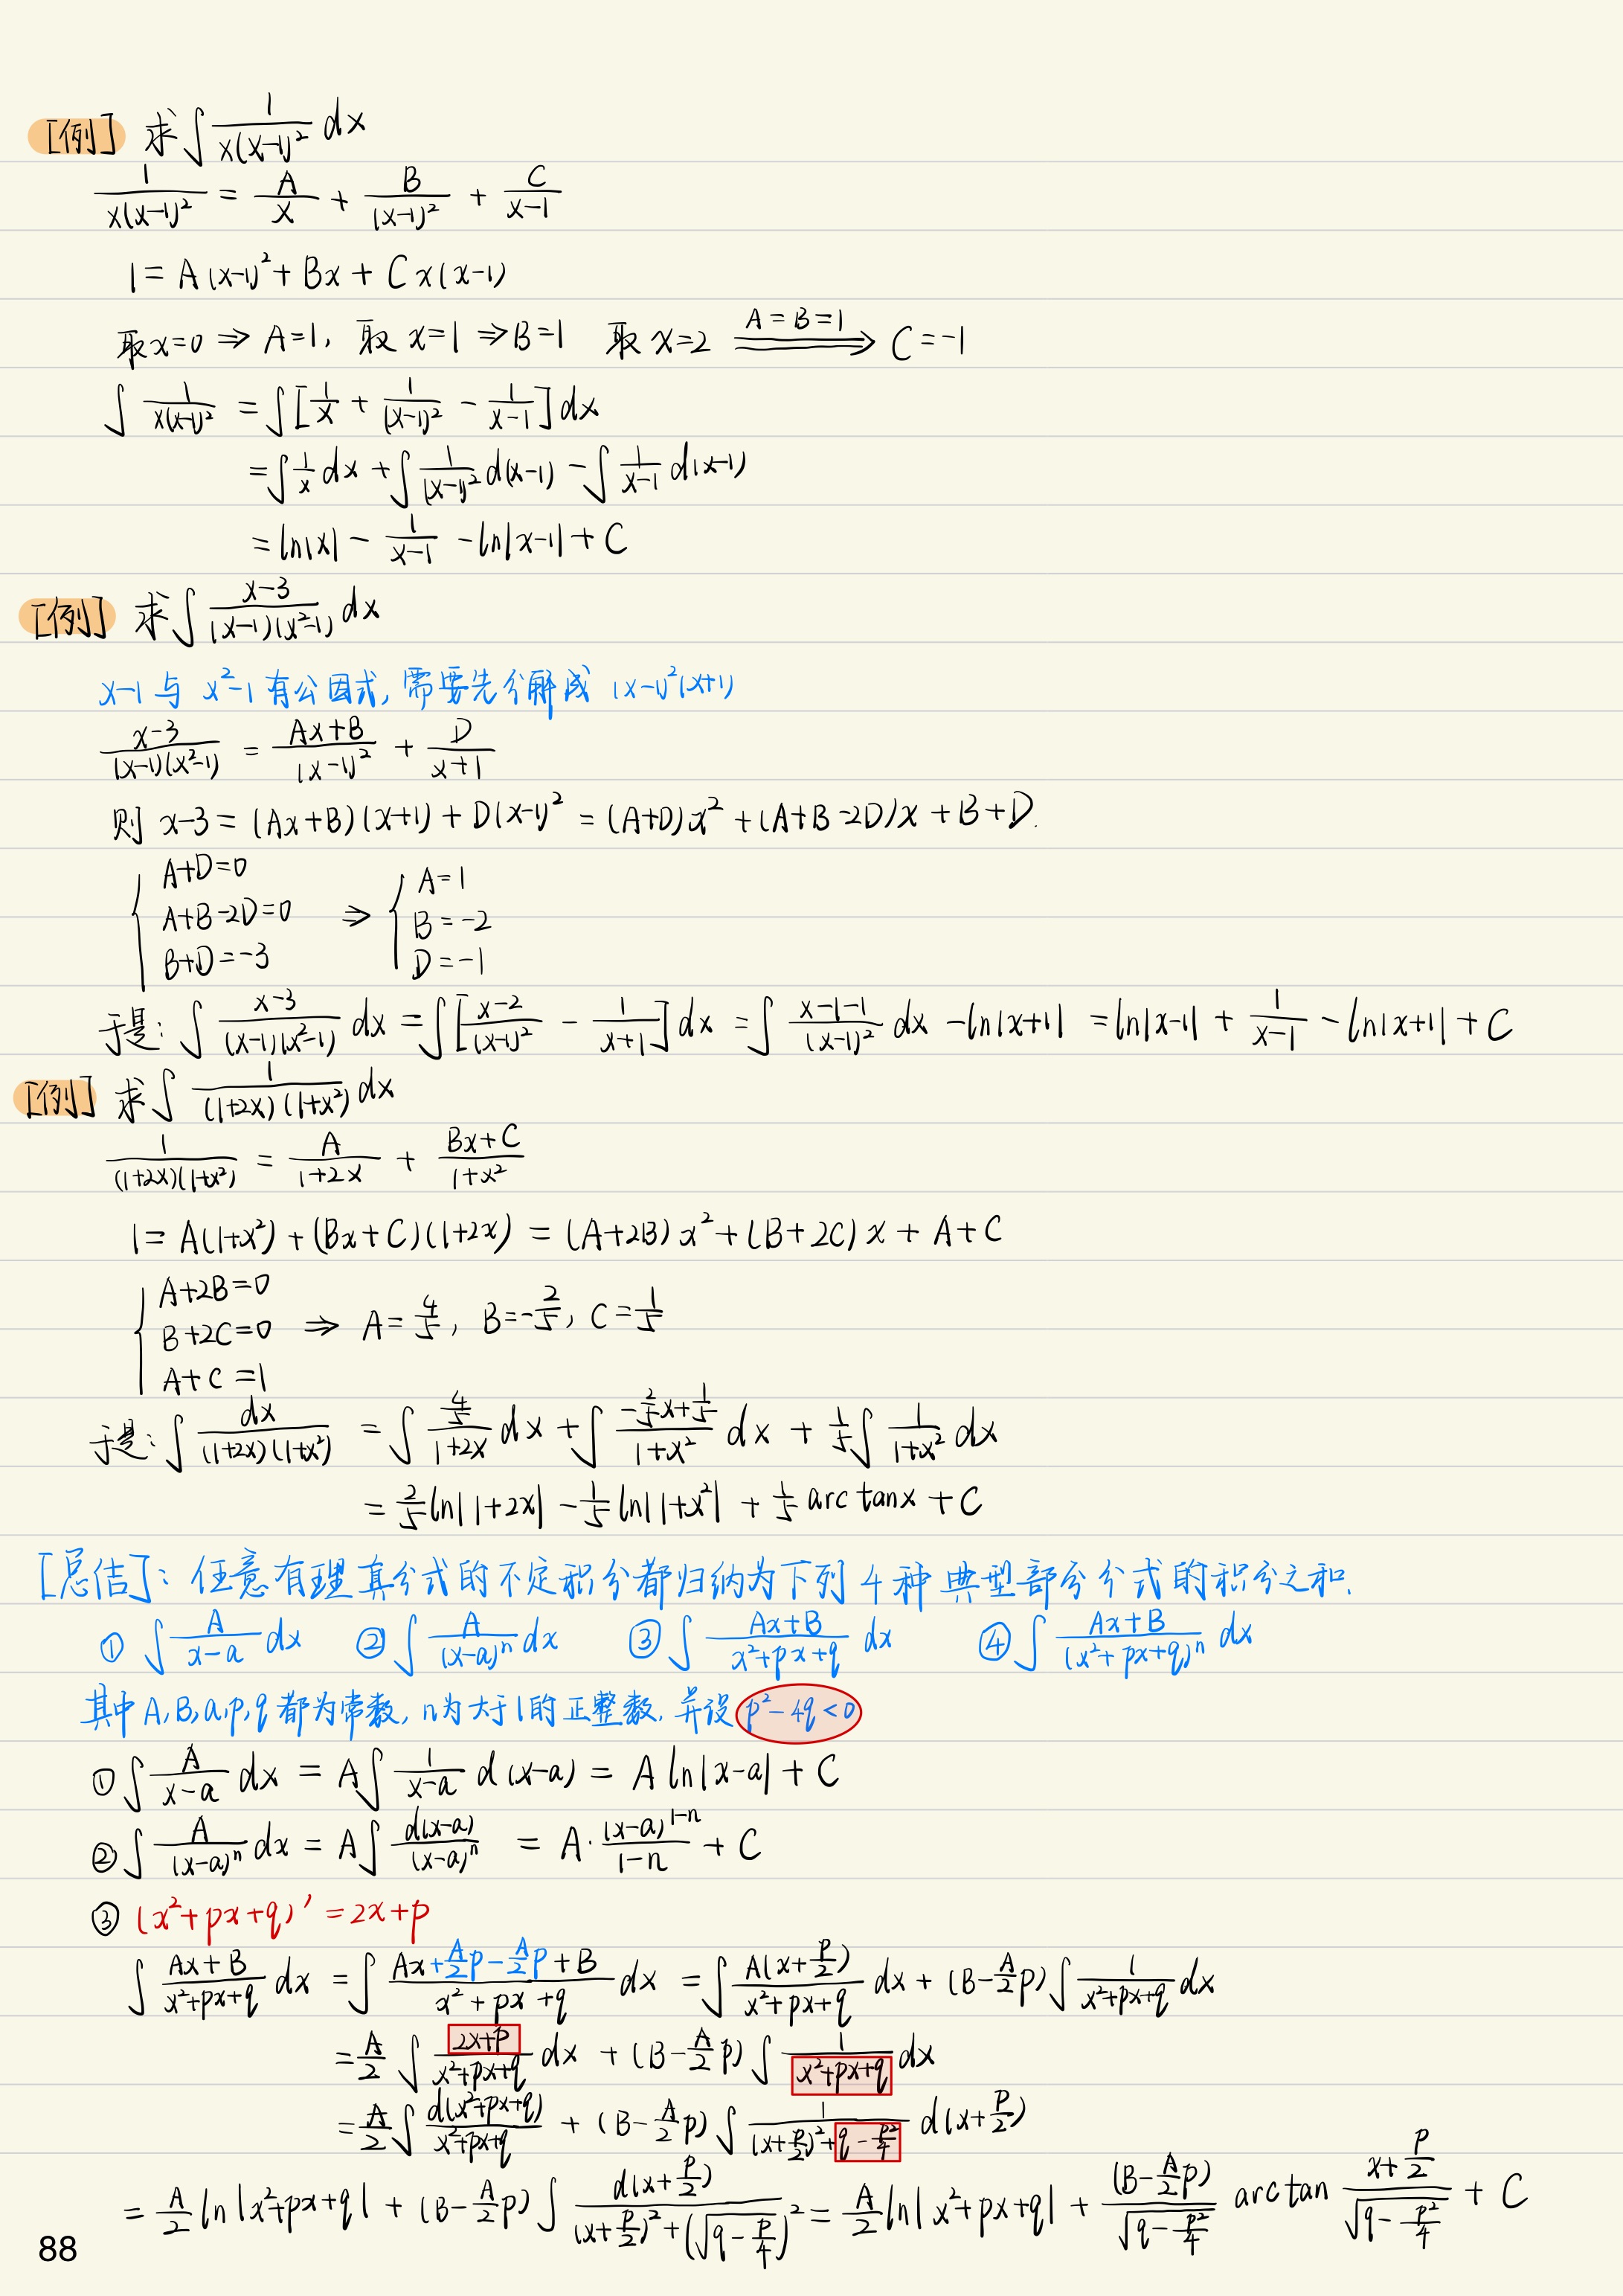 [例] 求∫ 1/(x(x-1)²) dx
1/(x(x-1)²) = A/x + B/(x-1)² + C/(x-1)
1 = A(x-1)² + Bx + Cx(x-1)
取x=0 ⇒ A=1, 取 x=1 ⇒ B=1 取 x=2 =(A=B=1)⇒ C=-1
∫ 1/(x(x-1)²) = ∫[1/x + 1/(x-1)² - 1/(x-1)]dx
= ∫ 1/x dx + ∫ 1/(x-1)² d(x-1) - ∫ 1/(x-1) d(x-1)
= ln|x| - 1/(x-1) - ln|x-1| + C
[例] 求∫ (x-3)/((x-1)(x²-1)) dx
x-1 与 x²-1 有公因式, 需要先分解成 (x-1)²(x+1)
(x-3)/((x-1)(x²-1)) = (Ax+B)/(x-1)² + D/(x+1)
则 x-3 = (Ax+B)(x+1) + D(x-1)² = (A+D)x² + (A+B-2D)x + B+D.
{ A+D=0
A+B-2D=0 ⇒ { A=1
B+D=-3 B=-2
D=-1
于是: ∫ (x-3)/((x-1)(x²-1)) dx = ∫[(x-2)/(x-1)² - 1/(x+1)]dx = ∫ (x-1-1)/(x-1)² dx - ln|x+1| = ln|x-1| + 1/(x-1) - ln|x+1| + C
[例] 求∫ 1/((1+2x)(1+x²)) dx
1/((1+2x)(1+x²)) = A/(1+2x) + (Bx+C)/(1+x²)
1 = A(1+x²) + (Bx+C)(1+2x) = (A+2B)x² + (B+2C)x + A+C
{ A+2B=0
B+2C=0 ⇒ A=4/5, B=-2/5, C=1/5
A+C=1
于是: ∫ dx/((1+2x)(1+x²)) = ∫ (4/5)/(1+2x) dx + ∫ (-2/5x+1/5)/(1+x²) dx + 1/5∫ 1/(1+x²) dx
= 2/5 ln|1+2x| - 1/5 ln|1+x²| + 1/5 arctanx + C
[总估]: 任意有理真分式的不定积分都归纳为下列 4 种典型部分分式的积分之和.
① ∫ A/(x-a) dx ② ∫ A/(x-a)ⁿ dx ③ ∫ (Ax+B)/(x²+px+q) dx ④ ∫ (Ax+B)/(x²+px+q)ⁿ dx
其中 A,B,a,p,q 都为常数, n为大于1的正整数, 并设 p²-4q<0
① ∫ A/(x-a) dx = A∫ 1/(x-a) d(x-a) = A ln|x-a| + C
② ∫ A/(x-a)ⁿ dx = A∫ d(x-a)/(x-a)ⁿ = A·(x-a)¹⁻ⁿ/(1-n) + C
③ (x²+px+q)' = 2x+p
∫ (Ax+B)/(x²+px+q) dx = ∫ (Ax+A/2p-A/2p+B)/(x²+px+q) dx = ∫ A(x+p/2)/(x²+px+q) dx + (B-A/2p)∫ 1/(x²+px+q) dx
= A/2 ∫ (2x+p)/(x²+px+q) dx + (B-A/2p)∫ 1/(x²+px+q) dx
= A/2 ∫ d(x²+px+q)/(x²+px+q) + (B-A/2p)∫ 1/((x+p/2)²+q-p²/4) d(x+p/2)
= A/2 ln|x²+px+q| + (B-A/2p)∫ d(x+p/2)/((x+p/2)²+(√(q-p/4))²) = A/2 ln|x²+px+q| + (B-A/2p)/√(q-p²/4) arctan (x+p/2)/√(q-p²/4) + C
88